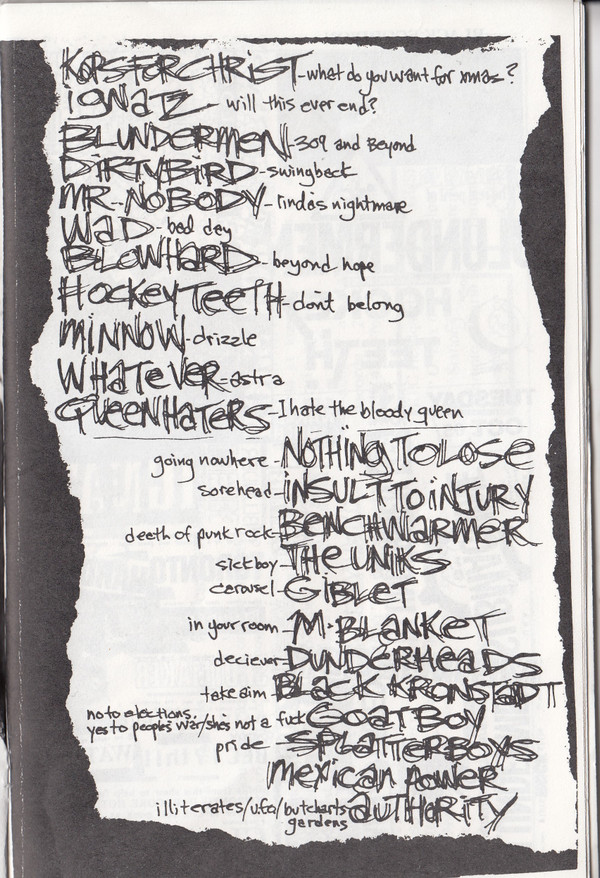 KOPS FOR CHRIST - what do you want for xmas?
iGNATZ - will this ever end?
BLUNDERMEN - 309 and Beyond
DiRTYBiRD - swingbeck
MR. NOBODY - lindas nightmare
WaD - bad day
BLOWHARD - beyond hope
HOCKEY TeeTH - dont belong
MiNNOW - drizzle
WHATeVeR - astra
QUEENHATERS - I hate the bloody queen
going nowhere - NOTHiNg TO LOSe
sorehead - iNSULT TO iNJURY
death of punk rock - BENCHWARMER
sickboy - THe UNiKS
carousel - GiBLeT
in your room - M. BLANKeT
deciever - DUNDeRHeaDS
take aim - BLaCK KRONSTaDT
no to elections.
yes to peoples war/shes not a fuck GOaTBOY
pride - SPLATTERBOYS
MEXiCaN POWER
illiterates/u.f.o/butcharts aUTHORiTY
gardens